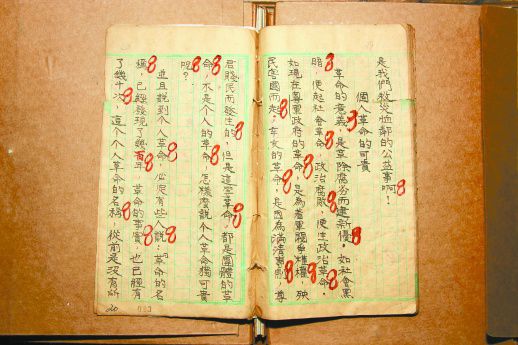 是我們救災恤鄰的公益事啊！
個人革命的可貴
革命的意義，是革除腐劣而建新優。如社會黑
暗，便起社會革命，政治腐敗，便生政治革命。
如現在專軍政府的革命，是為着軍閥專權，殃
民害國而起，辛亥的革命，是因為滿清專制，尊
君賤民而發生的，但是這些革命，都是團體的革
命，不是個人的革命，怎樣說個人革命獨可貴
呢？
並且說到个人革命，必定有些人說，革命的名
稱，已經發現了幾百年，革命的事實，也已經有
了幾十次，這个个人革命的名稱，從前是沒有所
20